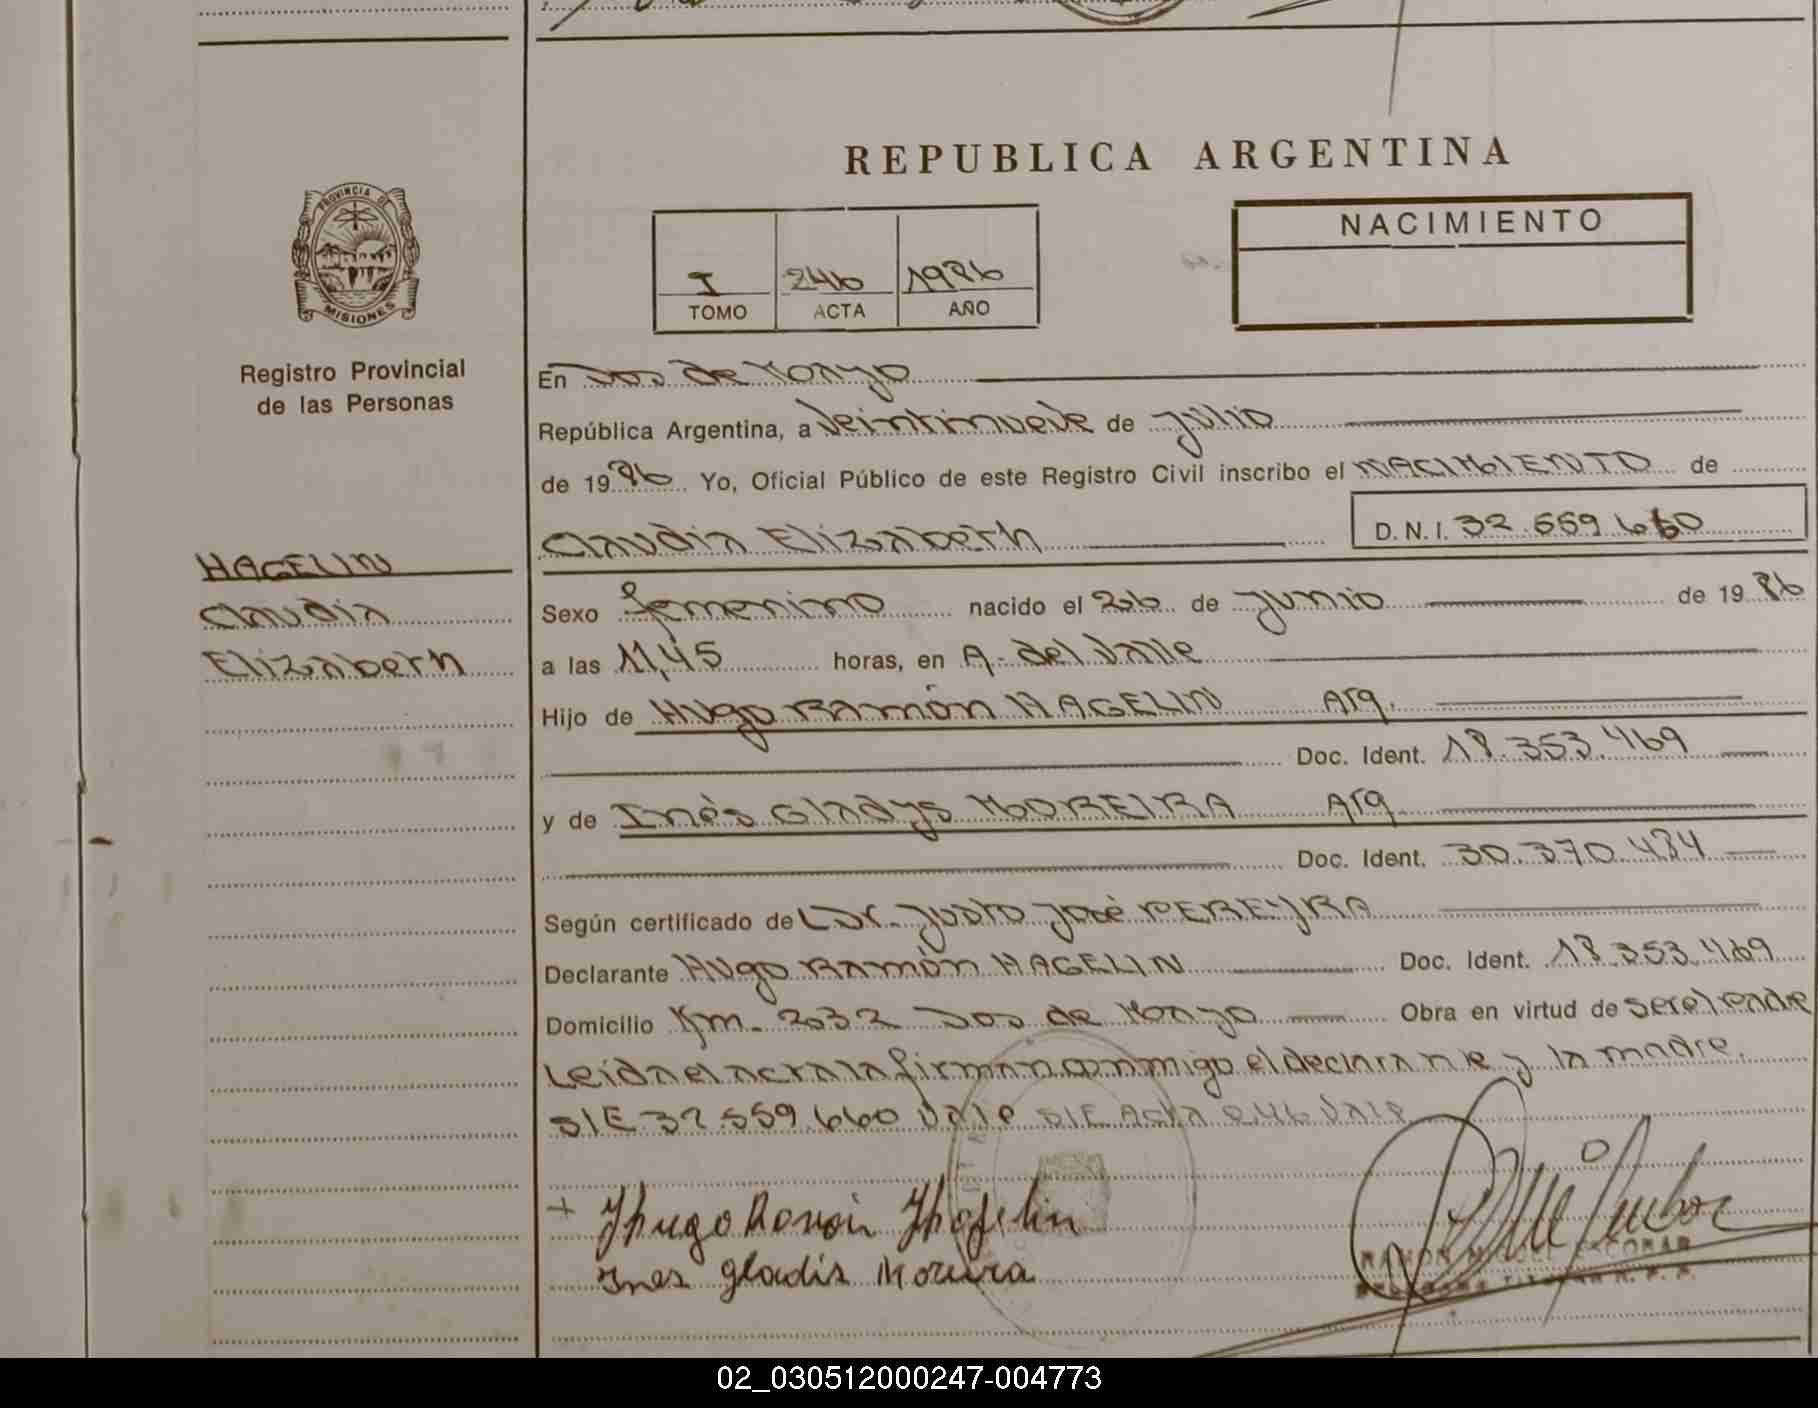 REPUBLICA ARGENTINA
PROVINCIA DE
MISIONES
Registro Provincial
de las Personas
I 246 1986
TOMO ACTA AÑO
NACIMIENTO
En Dos de Mayo
República Argentina, a Veintinueve de Julio
de 1986 Yo, Oficial Público de este Registro Civil inscribo el NACIMIENTO de
Claudia Elizabeth D.N.I. 32.559.660
HAGELIN
Claudia
Elizabeth
Sexo femenino nacido el 26 de Junio de 1986
a las 11,45 horas, en A. del Valle
Hijo de Hugo Ramón HAGELIN Arg.
Doc. Ident. 18.353.469
y de Inés Gladys MOREIRA Arg
Doc. Ident. 30.370.484
Según certificado de Dr. Justo José PEREYRA
Declarante Hugo Ramón HAGELIN Doc. Ident. 18.353.469
Domicilio Km. 232 Dos de Mayo Obra en virtud de ser el Padre
Leida el acta la firman conmigo el declarante y la madre.
S/E 32.559.660 Vale S/E Acta 246 Vale
+ Hugo Ramón Hagelin
Ines gladis Moreira
RAMON ESCOBAR
02_030512000247-004773